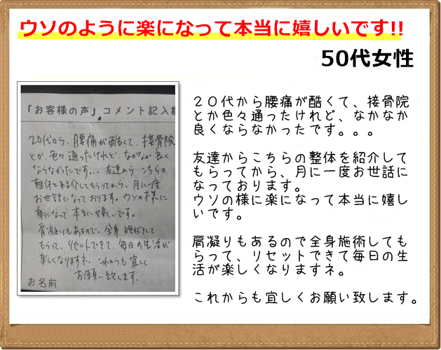 ウソのように楽になって本当に嬉しいです!!
50代女性
「お客様の声」コメント記入
20代から、腰痛が酷くて、接骨院
とか色々通ったけれど、なかなか良く
ならなかったです。。。友達からこちらの
整体を紹介してもらってから、月に一度
お世話になっております。ウソの様に
楽になって本当に嬉しいです。
肩凝りもあるので、全身施術して
もらって、リセットできて、毎日の生活が
楽しくなりますネ。これからも宜しく
お願い致します。
お名前
２０代から腰痛が酷くて、接骨院
とか色々通ったけれど、なかなか
良くならなかったです。。。
友達からこちらの整体を紹介して
もらってから、月に一度お世話に
なっております。
ウソの様に楽になって本当に嬉し
いです。
肩凝りもあるので全身施術しても
らって、リセットできて毎日の生
活が楽しくなりますネ。
これからも宜しくお願い致します。